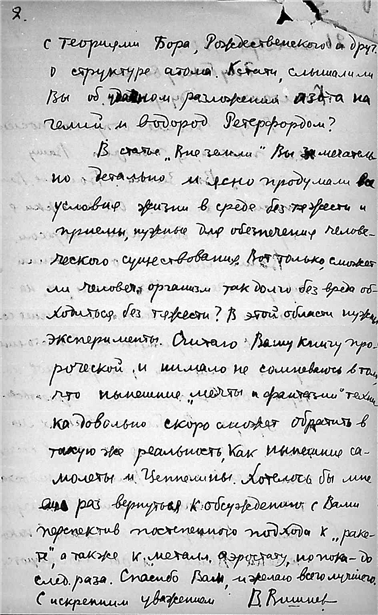 2.
с теориями Бора, Рождественского и друг.
о структуре атома. Кстати, слышали ли
Вы об удачном разложении азота на
гелий и водород Ретерфордом?
В статье „Вне земли" Вы замечатель
но детально и ясно продумали все
условия жизни в среде без тяжести и
приемы, нужные для обеспечения челове-
ческого существования. Вот только сможет
ли человеч. организм так долго без вреда об-
ходиться без тяжести? В этой области нужны
эксперименты. Считаю Вашу книгу про-
роческой и нимало не сомневаюсь в том,
что нынешние „мечты и фантазии" техни-
ка довольно скоро сможет обратить в
такую же реальность, как нынешние са-
молеты и Цеппелины. Хотелось бы мне
раз вернуться к обсуждению с Вами
перспектив постепенного подхода к „раке-
те", а также к металл. аэростату, но пока - до
след. раза. Спасибо Вам, и желаю всего лучшего.
С искренним уважением В.